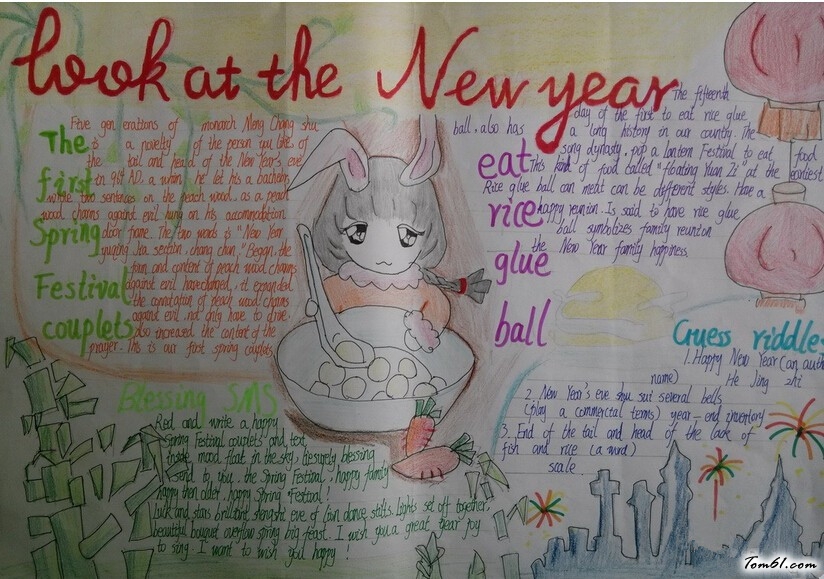 Look at the New year
The first Spring Festival couplets
Five gen erations of monarch Meng Chang shu
is a novelty of the person you like, of
the tail and head of the New Year's eve
in 964 AD. a whim, he let his a bachelors
whole two sentences on the peach wood. as a peach
wood charms against evil hung on his accommodation
door frame. The two words is "New Year
yuqing Jia section. chang chun." Began. the
fam and content of peach wood charms
against evil havechanged, it expanded
the connotation of peach wood charms
against evil not only have to drive.
also increased the content of the
prayer. This is our first spring couplets
Blessing SMS
Red and write a happy
Spring Festival couplets and text
inside mood float in the sky, blessing
send to you. the Spring Festival. happy family
happy then older. happy Spring Festival!
Luck and stars brilliant shengshi eve of lion dance stilts. Lights set off together.
beautiful bouquet overflow spring big feast. I wish you a great year joy
to sing. I want to wish you happy!
eat rice glue ball
The fifteenth
day of the first to eat rice glue
ball. also has a long history in our country. The
song dynasty. pop a lantern Festival to eat,
This kind of food called "Floating Yuan Zi" at the earliest food
Rice glue ball can meat can be different styles. Have a
happy reunion. Is said to have rice glue
ball symbolizes family reunion
the New Year family happiness.
Guess riddle
1. Happy New Year (an auth
name) He Jing zhi
2. New Year's eve shu sui several bells
(play a commercial terms) year-end inventory
3. End of the tail and head of the lack of
fish and rice (a word)
scale.
Tom61.com